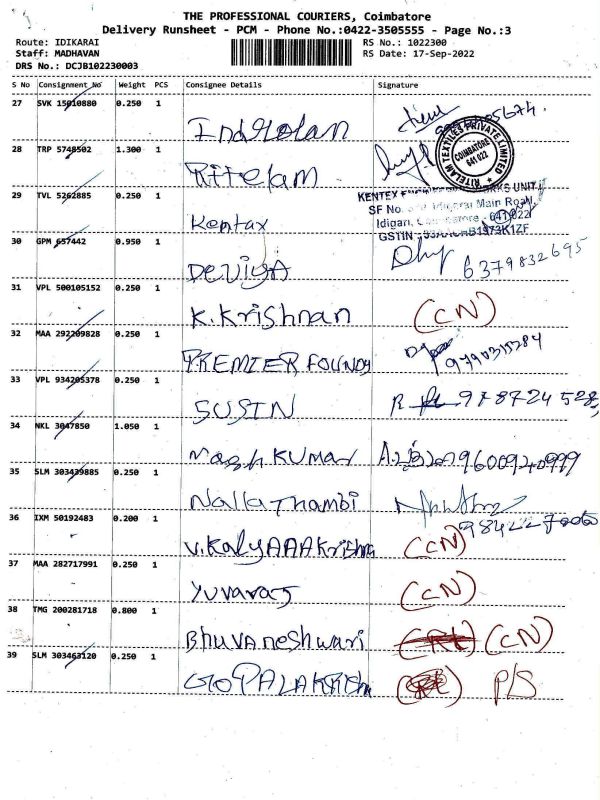 THE PROFESSIONAL COURIERS, Coimbatore
Delivery Runsheet - PCM - Phone No.:0422-3505555 - Page No.:3
Route: IDIKARAI RS No.: 1022300
Staff: MADHAVAN RS Date: 17-Sep-2022
DRS No.: DCJB102230003
S No Consignment No Weight PCS Consignee Details Signature
27 SVK 15010880 0.250 1
Indgolan
28 TRP 5748502 1.300 1
Ritelam
RITELAM TEXTILES PRIVATE LIMITED
COIMBATORE
641 022
29 TVL 5262885 0.250 1
Kentax
KENTEX UNIT
SF No. Idigarai Main Road
Idigarai, Coimbatore - 641022
GSTIN
30 GPM 657442 0.950 1
Deviya 6379832695
31 VPL 500105152 0.250 1
K.Krishnan (CN)
32 MAA 292209828 0.250 1
PREMIER FOUNDY
33 VPL 934205378 0.250 1
SUSIN R
34 NKL 3047850 1.050 1
Magsh KUMAR 9600940999
35 SLM 303439885 0.250 1
NallaThambi
36 IXM 50192483 0.200 1
V.KalyAAAkrishna (CN)
37 MAA 282717991 0.250 1
Yuvaraj (CN)
38 TMG 200281718 0.800 1
Bhuvaneshwari (CN)
39 SLM 303463120 0.250 1
GOPALAKRISHN P/S